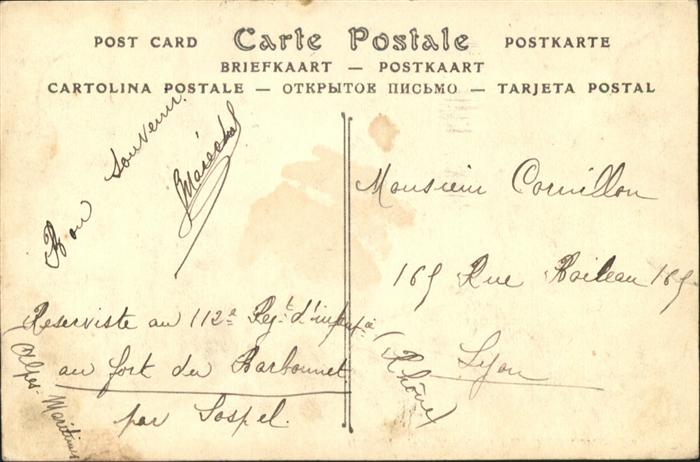 POST CARD Carte Postale POSTKARTE
BRIEFKAART — POSTKAART
CARTOLINA POSTALE — ОТКРЫТОЕ ПИСЬМО — TARJETA POSTAL
Bon souvenir.
Maréchal
Reserviste au 112e Regt d'infant ie
au fort du Barbonnet
par Sospel.
(Alpes-Maritimes
Monsieur Cornillon
165 Rue Boileau 165
Lyon
(Rhône)